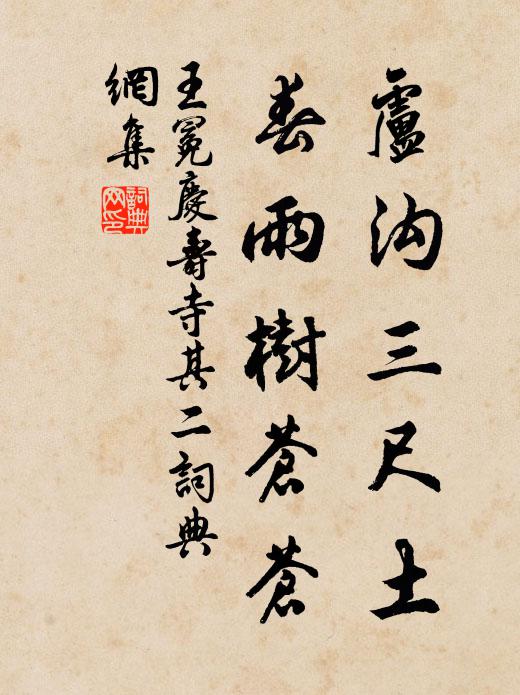 盧沟三尺土
春雨樹蒼蒼
王冕慶壽寺其二詞典
網集
詞典
网印